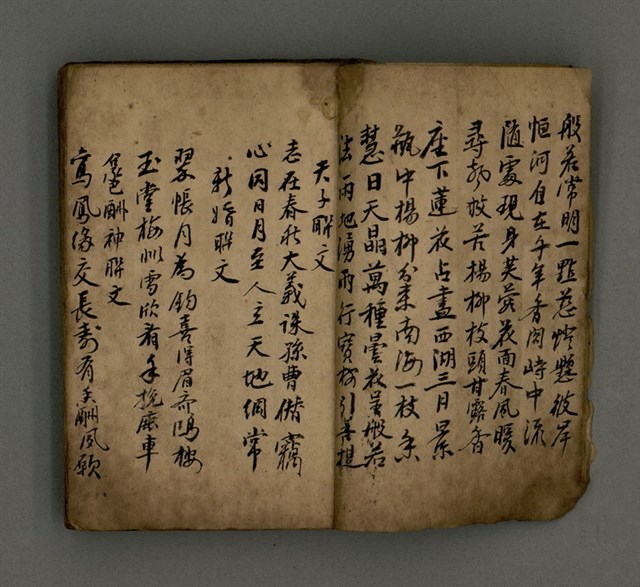 般若常明一點慈燈懸彼岸
恒河自在千年香閣峙中流
隨處現身芙蓉花面春風暖
尋声救苦楊柳枝頭甘露香
座下蓮花占盡西湖三月景
瓶中楊柳分来南海一枝春
慧日天晶萬種曇花呈般若
法雨地湧兩行寶樹引菩提
夫子聯文
志在春秋大義誅孫曹僭竊
心同日月至人立天地綱常
新婚聯文
翠帳月為鈎喜得眉齊鴻
玉堂梅似雪欣看手挽鹿車
酬神聯文
鸞鳳缘交長壽有酬風願